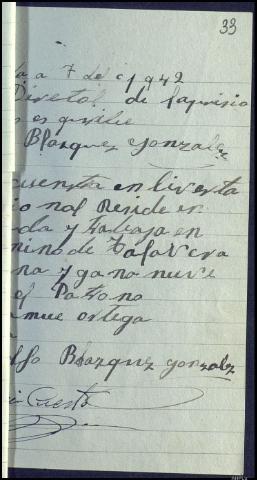 33
a 7 de 1942
Diretol de la prisio
Blazquez gonzalez
cuentra en liverta
cio nal Reside en
da y trabaja en
mino de Talavera
na y ga na nueve
el Patrono
mue ortega
lfo Blazquez gonzalz
Cuesta